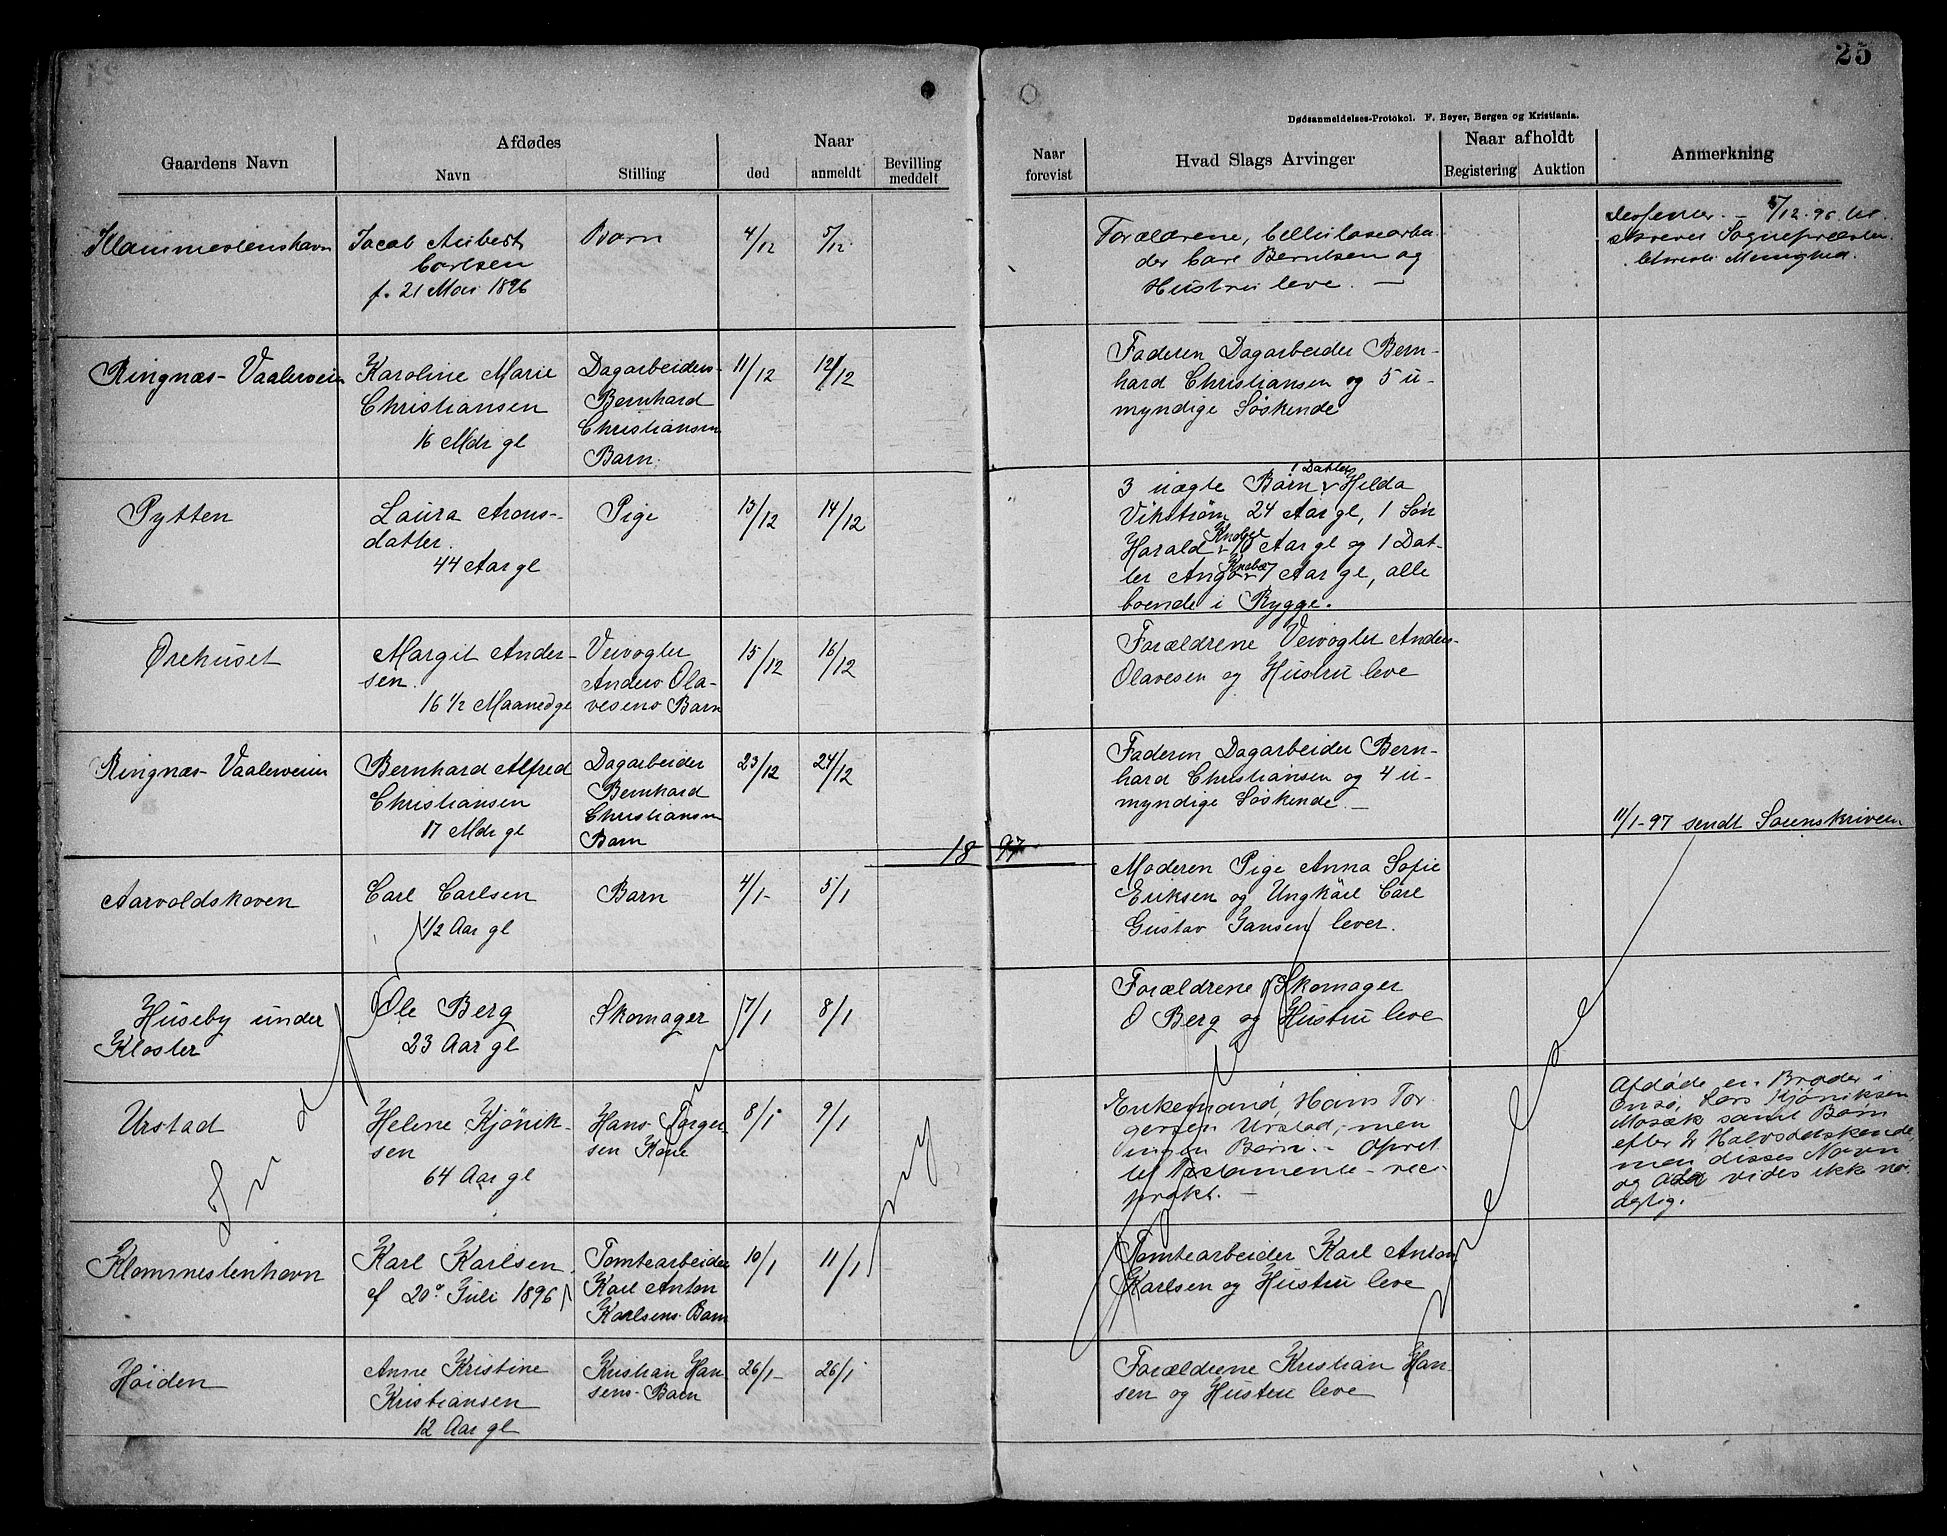 25
Dødsanmeldelses-Protokol. F. Beyer, Bergen og Kristiania.
Gaardens Navn
Afdødes
Navn
Stilling
Naar
død
anmeldt
Bevilling
meddelt
Naar
forevist
Hvad Slags Arvinger
Naar afholdt
Registering
Auktion
Anmerkning
Klommestenshavn
Jacob Aubert
Carlsen
f. 21 Mai 1896
Barn
4/12
5/12
Forældrene, Cellulosearbei-
der Carl Berntsen og
Hustru leve. —
— 5/12.96 til-
skrevet Sognepræsten
Menighed.
Ringnæs-Vaalerveien
Karoline Marie
Christiansen
16 Mdr gl
Dagarbeiders
Bernhard
Christiansen
Barn.
11/12
12/12
Faderen Dagarbeider Bern-
hard Christiansen og 5 u-
myndige Søskende
Pytten
Laura Arons-
datter.
44 Aar gl
Pige
13/12
14/12
1 Datter
3 uægte Børn Hilda
Vikstrøm 24 Aar gl, 1 Søn
Harald 10 Aar gl og 1 Dat-
ter 7 Aar gl, alle
boende i Rygge.
Ørehuset
Margit Ander-
sen.
16 1/2 Maaned gl
Veivogter
Anders Ola-
vesens Barn
15/12
16/12
Forældrene Veivogter Anders
Olavesen og Hustru leve
Ringnæs-Vaalerveien
Bernhard Alfred
Christiansen
17 Mdr gl
Dagarbeider
Bernhard
Christiansen
Barn
23/12
24/12
Faderen Dagarbeider Bern-
hard Christiansen og 4 u-
myndige Søskende. —
11/1-97 sendt Sorenskriveren
18 97
Aarvoldskoven
Carl Carlsen
1/2 Aar gl
Barn
4/1-
5/1
Moderen Pige Anna Sofie
Eriksen og Ungkarl Carl
Gustav Jansen lever.
Huseby under
Kloster
Ole Berg
23 Aar gl
Skomager
7/1
8/1
Forældrene Skomager
O Berg og Hustru leve
Urstad
Helene Kjønik-
sen
64 Aar gl
Hans Torger-
sen Kone
8/1
9/1
Enkemand, Hans Tor-
gersen Urstad, men
ingen Børn. - Opret-
tet Testamente - reci-
prokt. —
Afdøde en Broder i
Onsø, Lars Kjøniksen
Mosæk samt Børn
efter 2 Halvsødskende,
men disses Navn
og vides ikke nø-
agtig.
Klommestenhavn
Karl Karlsen
f 20de Juli 1896
Tomtearbeider
Karl Anton
Karlsens Barn
10/1
11/1
Tomtearbeider Karl Anton
Karlsen og Hustru leve
Høiden
Anne Kristine
Kristiansen
12 Aar gl
Kristian Han-
sens Barn
26/1-
26/1
Forældrene Kristian Han-
sen og Hustru leve